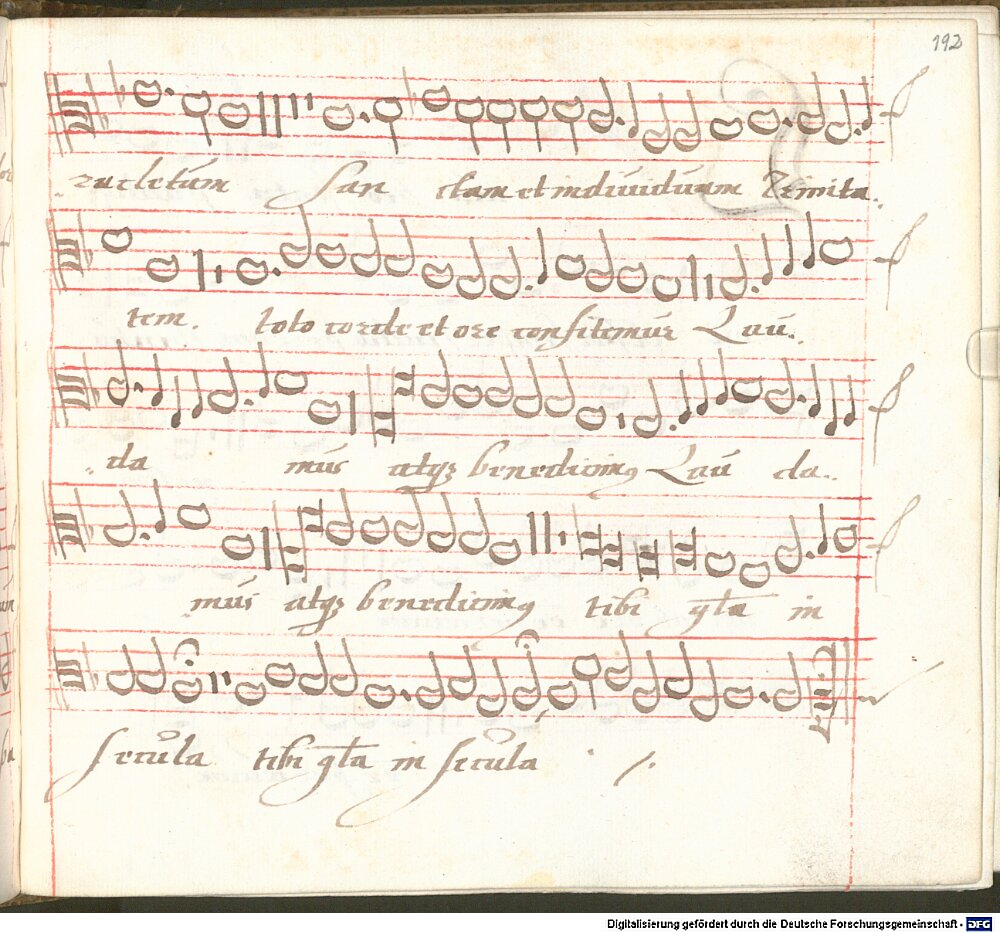 192
racletum San ctam et individuam Trinita.
tem. toto corde et ore confitemur Lau..
. da mus atqз benedicimꝰ Lau da..
mus atqз benedicimꝰ tibi gl̄a in
secula tibi gl̄a in secula
Digitalisierung gefördert durch die Deutsche Forschungsgemeinschaft - DFG